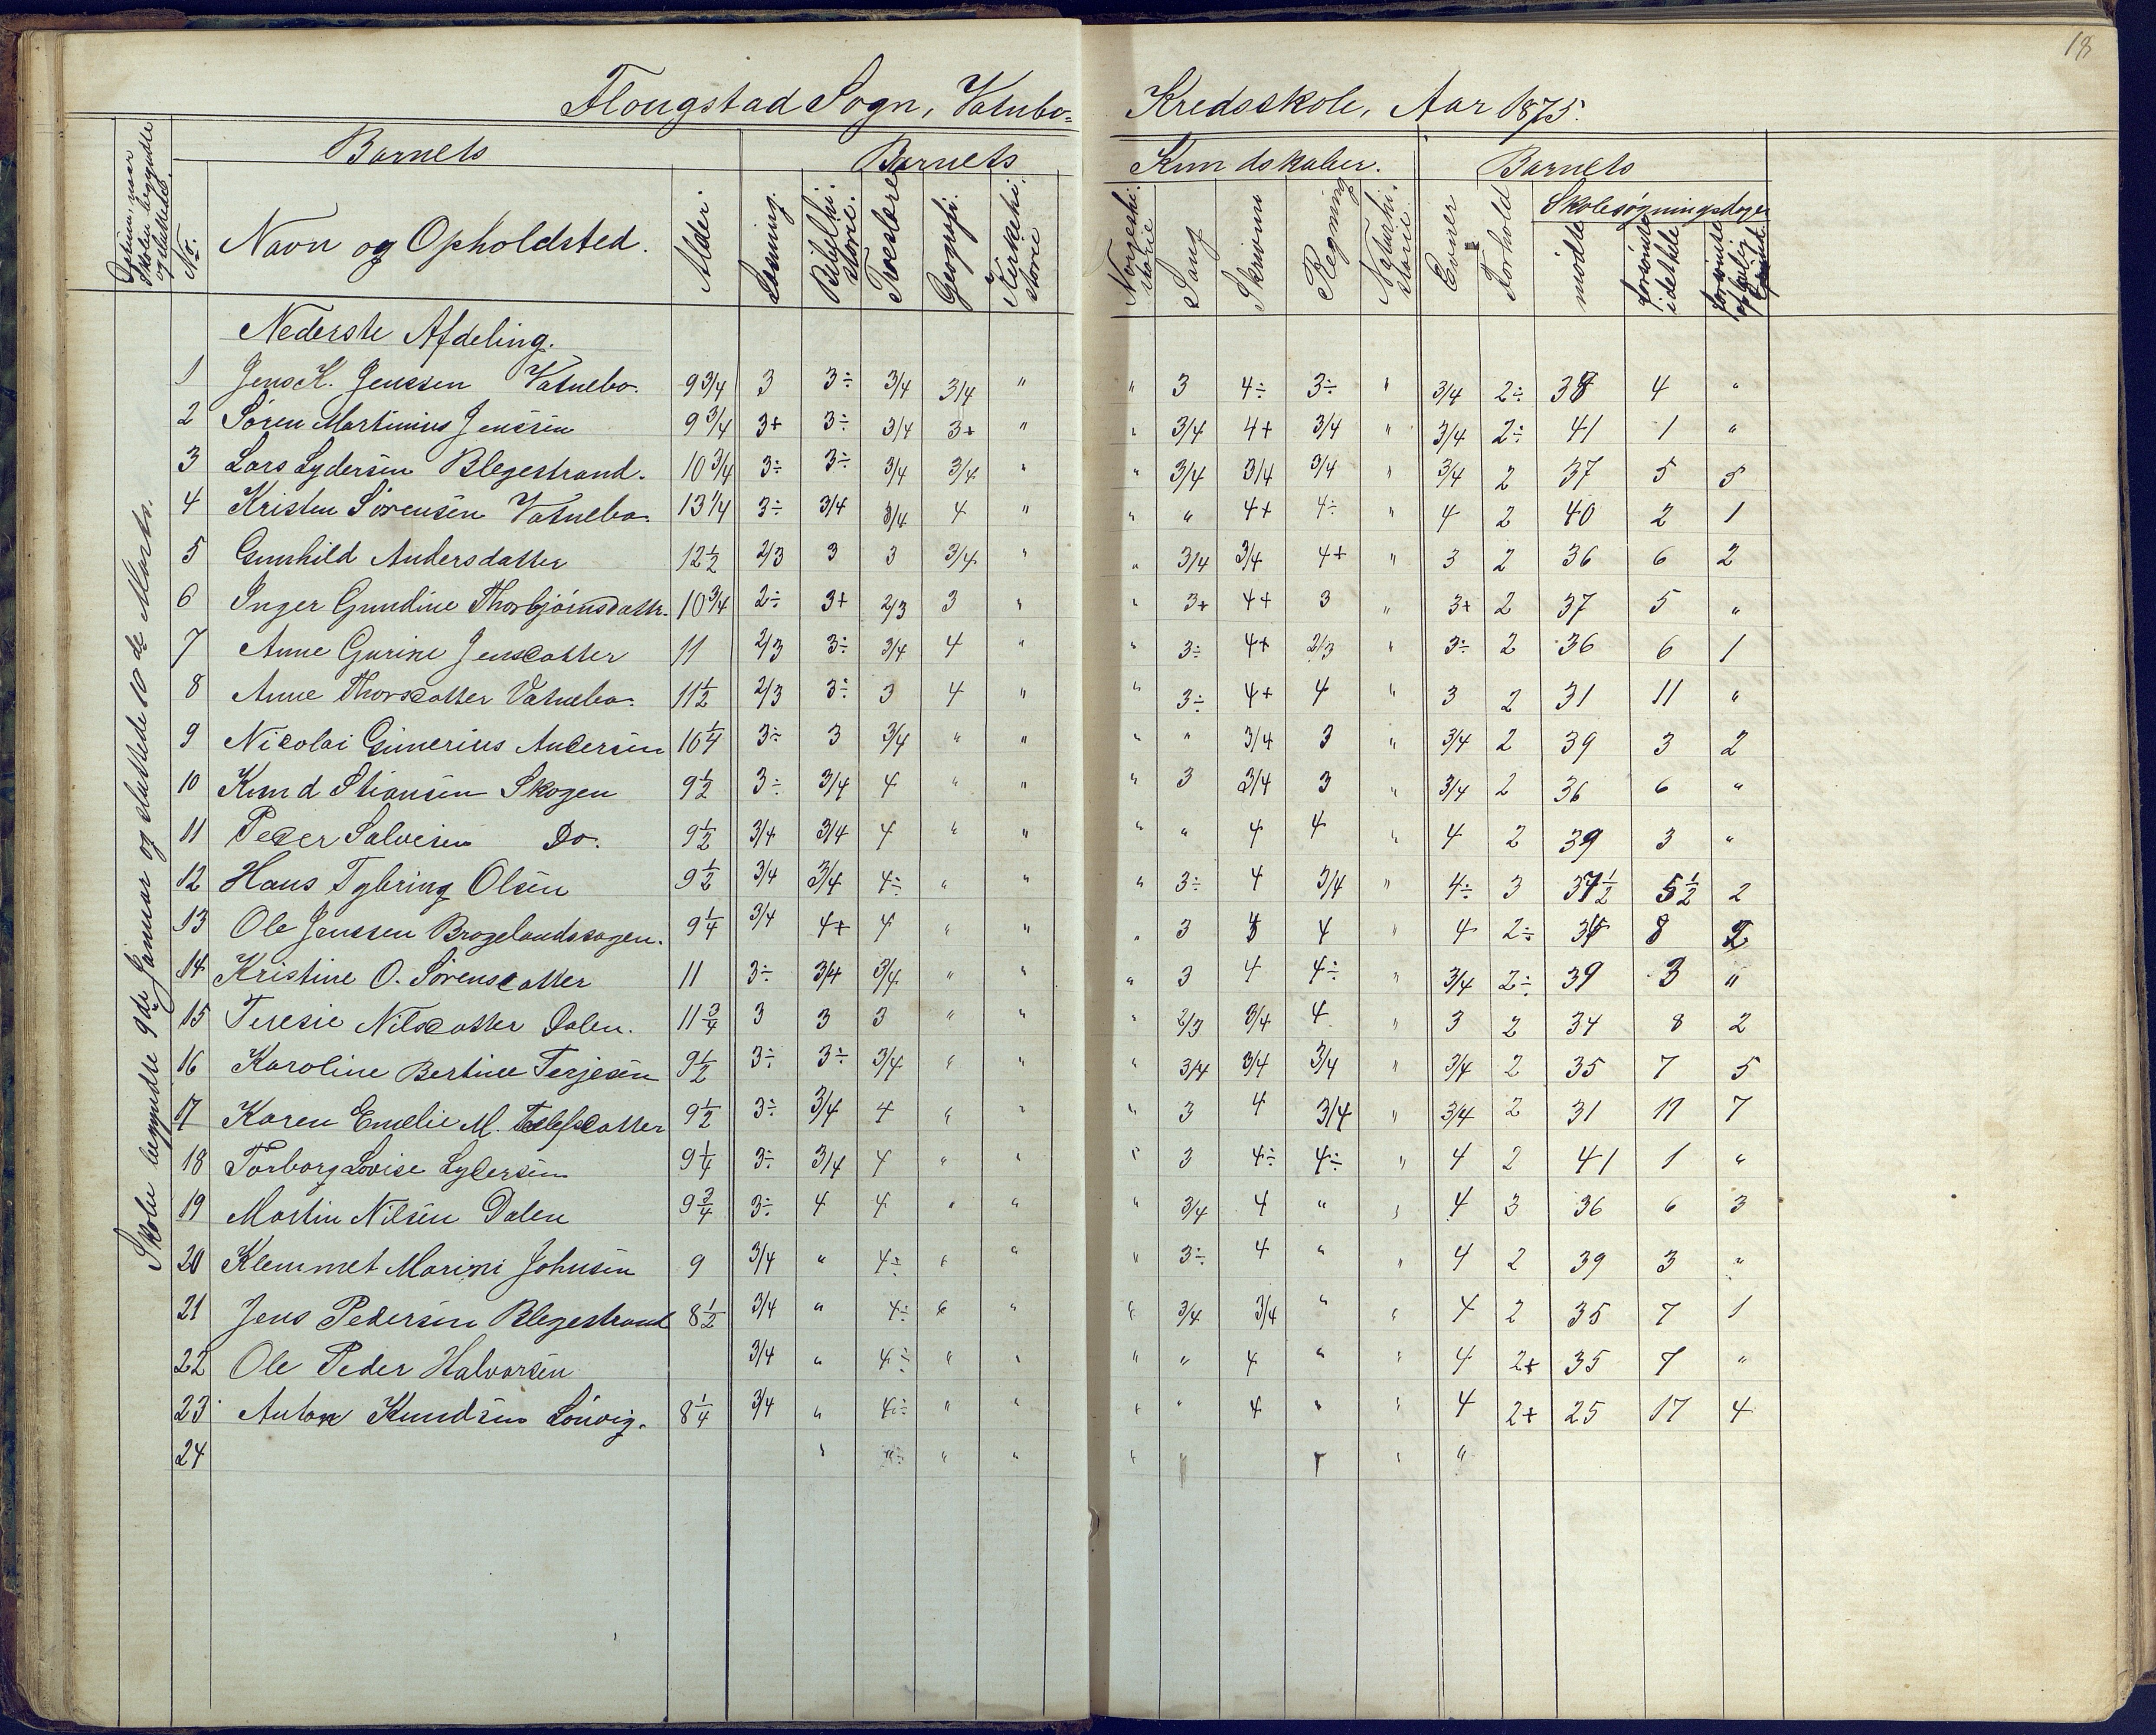 18
Flougstad Sogn, Vatnbo- Kredsskole, Aar 1875.
Datum, naar Skolen begyndte og sluttede.
Barnets Barnets Kundskaber. Barnets
No. Navn og Opholdsted. Alder. Læsning. Bibelhistorie. Troeslære Geografi. Kirkehistorie Norgeshistorie Sang Skrivni Regning Naturhistorie. Evner Forhold Skolesøgningsdage
mödte forsömte i det hele forsömte af lovlig Grund
Skolen begyndte 9de Januar og sluttede 10de Marts.
Nederste Afdeling.
1 Jens K. Jenssen Vatnebo. 9 3/4 3 3÷ 3/4 3/4 " " 3 4÷ 3÷ " 3/4 2÷ 38 4 "
2 Søren Martinius Jenssen 9 3/4 3+ 3÷ 3/4 3+ " " 3/4 4+ 3/4 " 3/4 2÷ 41 1 "
3 Lars Lydersen Blegestrand. 10 3/4 3÷ 3÷ 3/4 3/4 " " 3/4 3/4 3/4 " 3/4 2 37 5 5
4 Kristen Sørensen Vatnebo. 13 1/4 3÷ 3/4 3/4 4 " " " 4+ 4÷ " 4 2 40 2 1
5 Gunhild Andersdatter 12 1/2 2/3 3 3 3/4 " " 3/4 3/4 4+ " 3 2 36 6 2
6 Inger Gundine Thorbjørnsdattr. 10 3/4 2÷ 3+ 2/3 3 " " 3+ 4+ 3 " 3+ 2 37 5 "
7 Anne Gurine Jensdatter 11 2/3 3÷ 3/4 4 " " 3÷ 4+ 2/3 " 3÷ 2 36 6 1
8 Anne Thorsdatter Vatnebo. 11 1/2 2/3 3÷ 3 4 " " 3÷ 4+ 4 " 3 2 31 11 "
9 Nicolai Gunerius Andersen 10 1/4 3÷ 3 3/4 " " " " 3/4 3 " 3/4 2 39 3 2
10 Knud Stiansen Skogen 9 1/2 3÷ 3/4 4 " " " 3 3/4 3 " 3/4 2 36 6 "
11 Peder Salvesen Do. 9 1/2 3/4 3/4 4 " " " " 4 4 " 4 2 39 3 "
12 Hans Tybring Olsen 9 1/2 3/4 3/4 4÷ " " " 3÷ 4 3/4 " 4÷ 3 37 1/2 5 1/2 2
13 Ole Jenssen Brogelandssagen. 9 1/4 3/4 4+ 4 " " " 3 4 " 4 2÷ 8 2
14 Kristine O. Sørensdatter 11 3÷ 3/4 3/4 " " " 3 4 4÷ " 3/4 2÷ 39 3 "
15 Teresie Nilsdatter Dalen. 11 3/4 3 3 3 " " " 2/3 3/4 4 " 3 2 34 8 2
16 Karoline Bertine Terjesen 9 1/2 3÷ 3÷ 3/4 " " " 3/4 3/4 3/4 " 3/4 2 35 7 5
17 Karen Emelie M. 9 1/2 3÷ 3/4 4 " " " 3 4 3/4 " 3/4 2 31 11 7
18 Torborg Lovise Lydersen 9 1/4 3÷ 3/4 4 " " " 3 4÷ 4÷ " 4 2 41 1 "
19 Martin Nilsen Dalen 9 3/4 3÷ 4 4 " " " 3/4 4 " " 4 3 36 6 3
20 Klemmet Marini Johnsen 9 3/4 " 4÷ " " " 3÷ 4 " " 4 2 39 3 "
21 Jens Pedersen Blegestrand 8 1/2 3/4 " 4÷ " " " 3/4 3/4 " " 4 2 35 7 1
22 Ole Peder Halvorsen 3/4 " 4÷ " " " " 4 " " 4 2+ 35 7 "
23 Anton Knudsen Lönvig. 8 1/4 3/4 " 4÷ " " " " 4 " " 4 2+ 25 17 4
24 " " " " " "